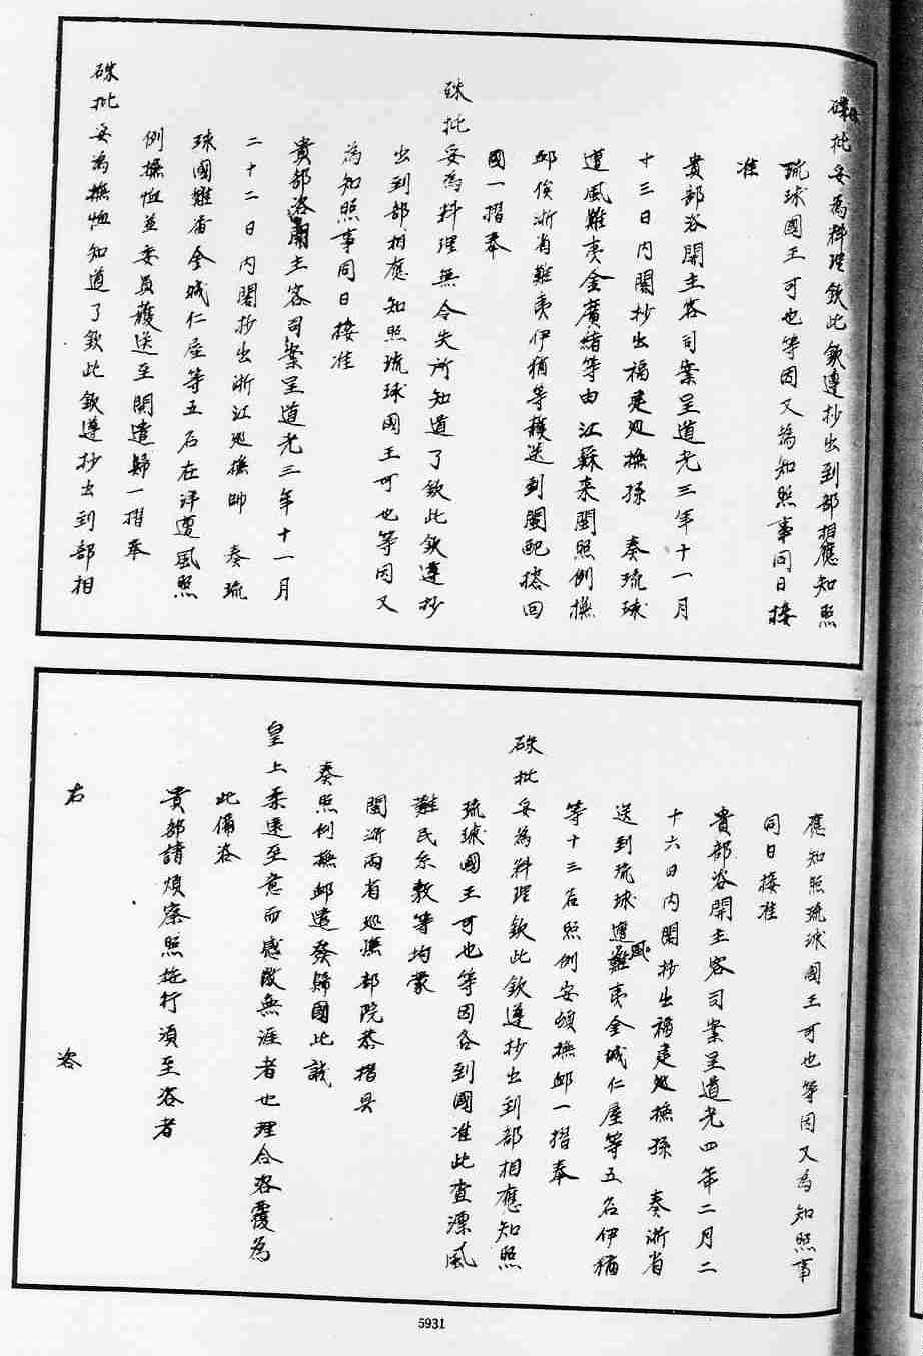 硃批妥為料理欽此欽遵抄出到部相應知照
琉球國王可也等因又為知照事同日接
准
貴部咨開主客司案呈道光三年十一月
十三日內閣抄出福建廵撫孫　奏琉球
遭風難夷金廣緒等由江蘇来閩照例撫
邱俟浙省難夷伊稍等護送到閩配搭回
國一摺奉
硃批妥為料理無令失所知道了欽此欽遵抄
出到部相應知照琉球國王可也等因又
為知照事同日接准
貴部咨開主客司案呈道光三年十一月
二十二日內閣抄出浙江廵撫帥　奏琉
球國難番金城仁屋等五名在洋遭風照
例撫恤並委員護送至閩遣歸一摺奉
硃批妥為撫恤知道了欽此欽遵抄出到部相
應知照琉球國王可也等因又為知照事
同日接准
貴部咨開主客司案呈道光四年二月二
十六日內閣抄出福建廵撫孫　奏浙省
送到琉球遭風難夷金城仁屋等五名伊稍
等十三名照例安頓撫邱一摺奉
硃批妥為料理欽此欽遵抄出到部相應知照
琉球國王可也等因各到國准此查漂風
難民糸数等均蒙
閩浙兩省廵撫部院恭摺具
奏照例撫邱遣發歸國此誠
皇上柔遠至意而感激無涯者也理合咨覆為
此備咨
貴部請煩察照施行湏至咨者
右　咨
5931